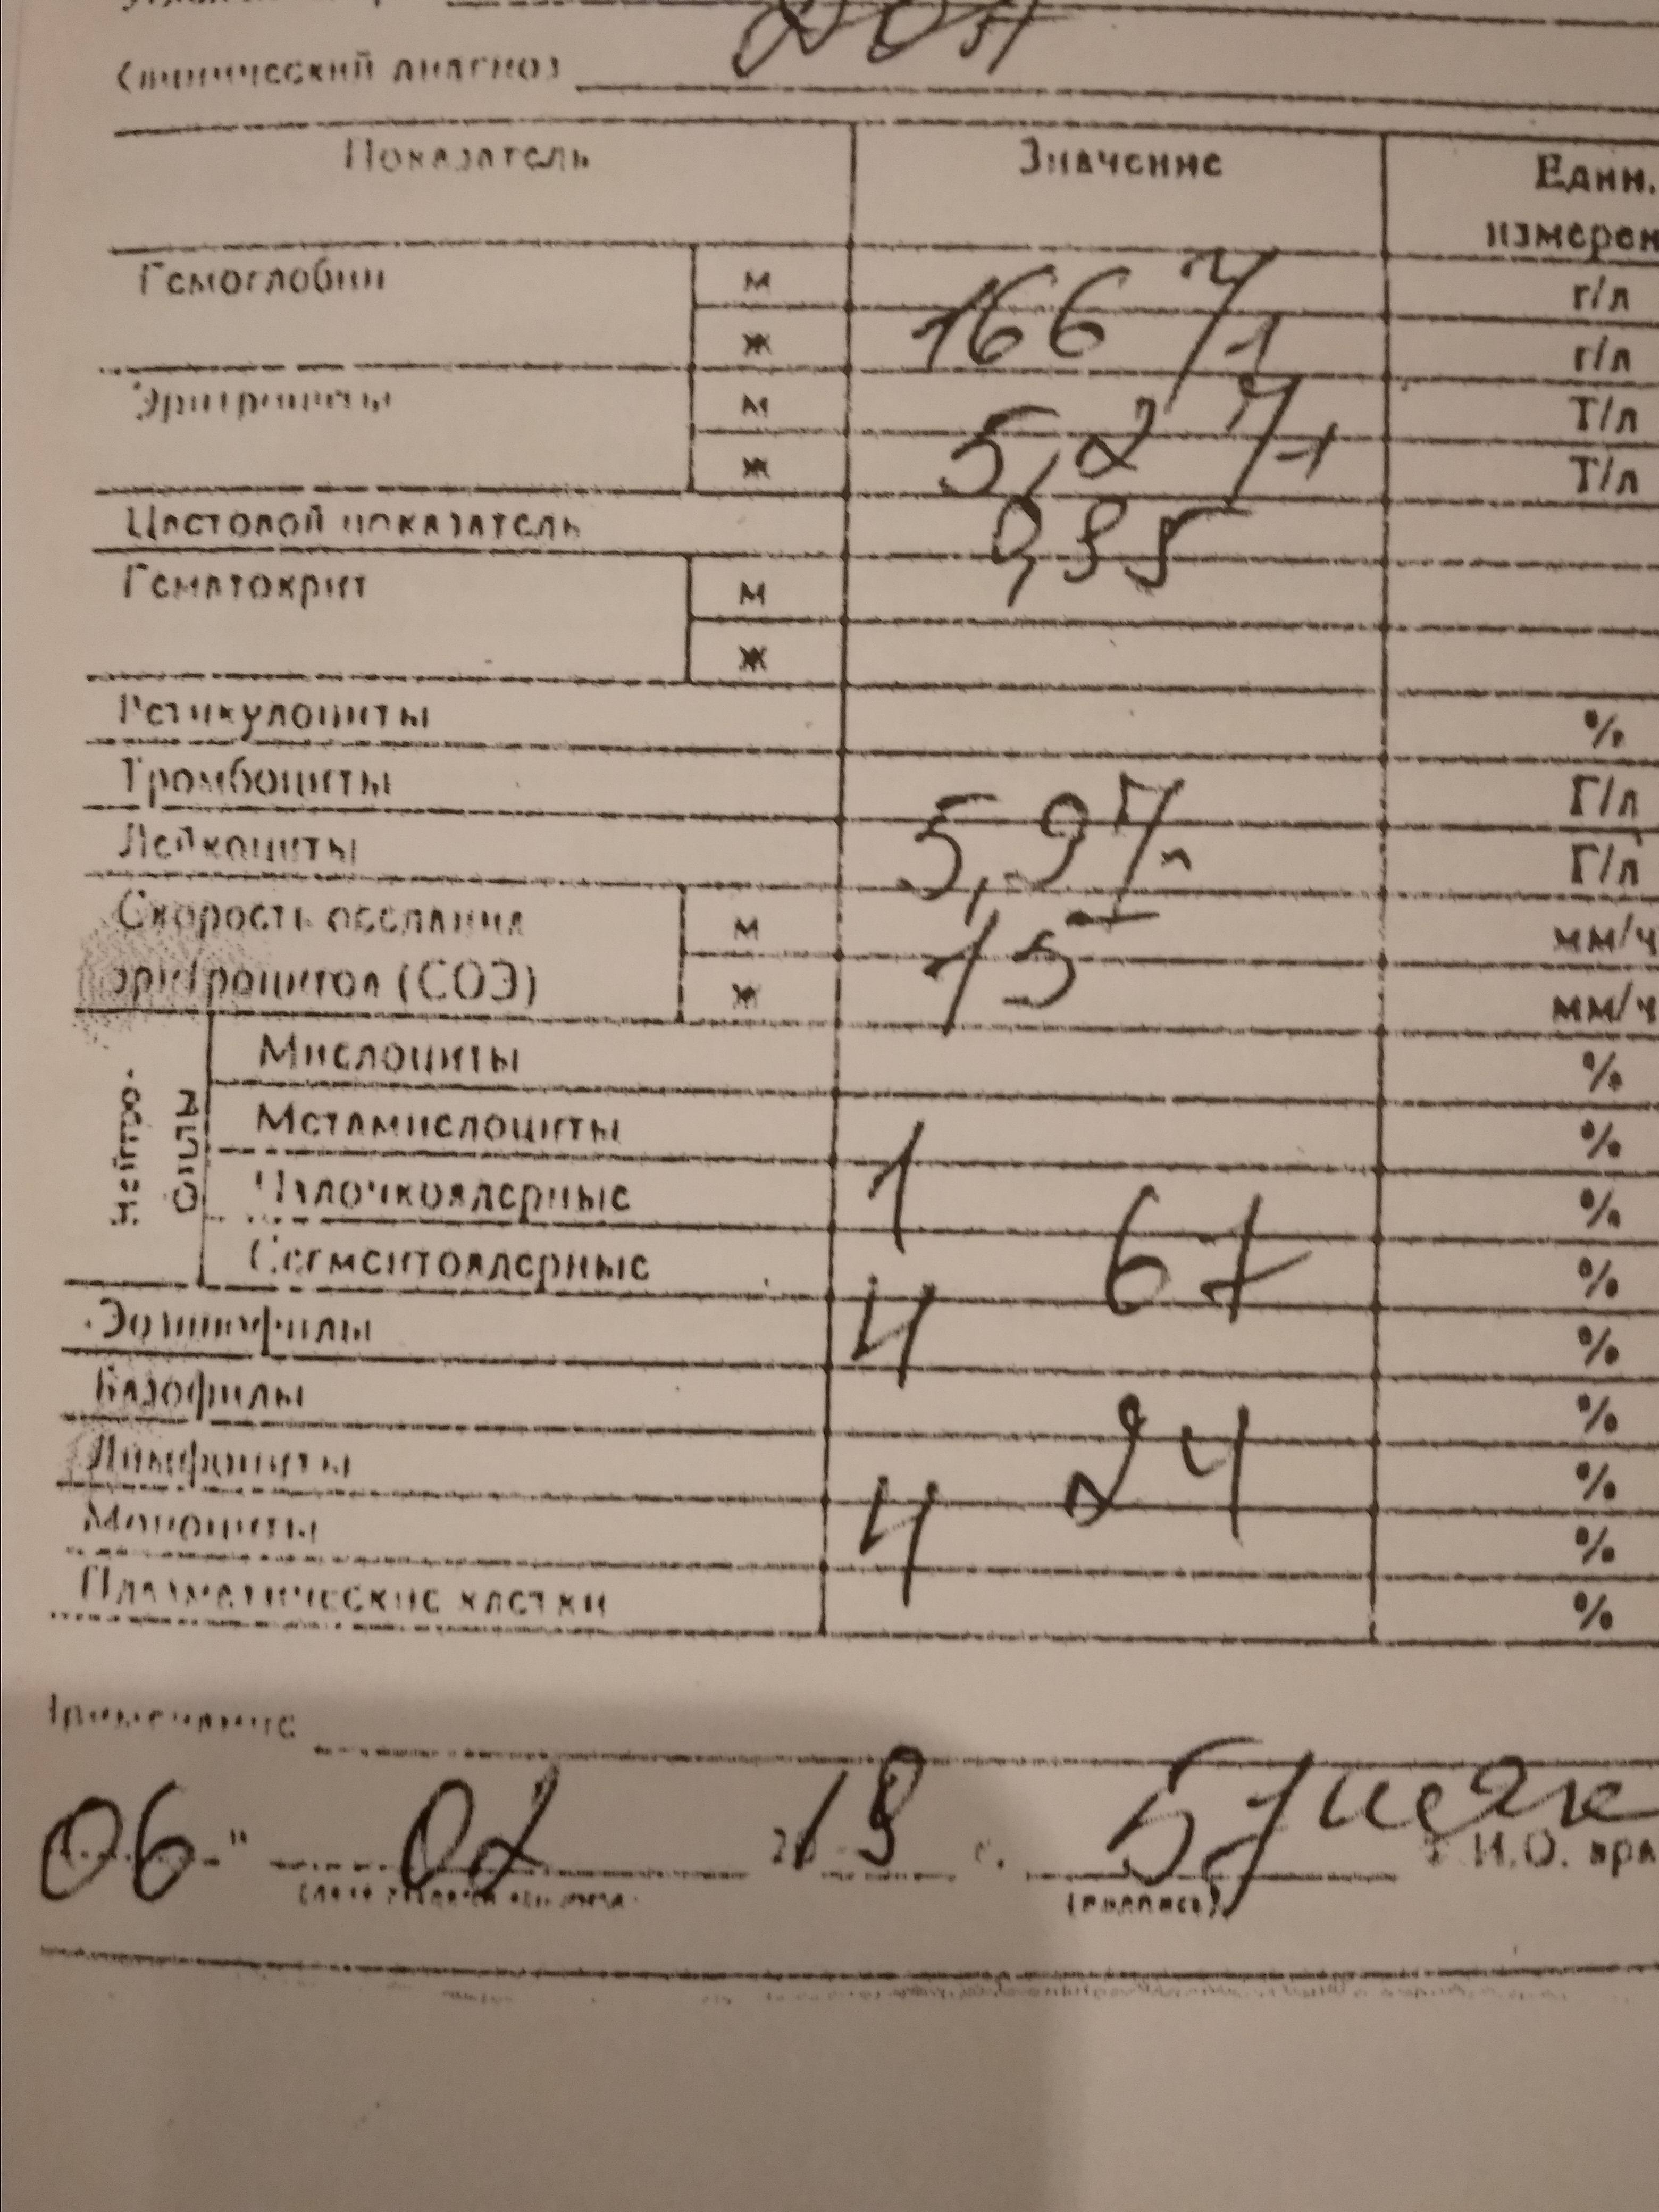 Клинический диагноз
Показатель Значение Един. измерен
Гемоглобин м 166 г/л г/л
ж г/л
Эритроциты м 5,2 Т/л Т/л
ж Т/л
Цветовой показатель 0,95
Гематокрит м
ж
Ретикулоциты %
Тромбоциты Г/л
Лейкоциты 5,9 Г/л Г/л
Скорость оседания м 15 мм/ч
эритроцитов (СОЭ) ж мм/ч
Нейтро-
филы
Миелоциты %
Метамиелоциты %
Палочкоядерные 1 %
Сегментоядерные 67 %
Эозинофилы 4 %
Базофилы %
Лимфоциты 24 %
Моноциты 4 %
Плазматические клетки %
Примечание
06 " 02 19
(подпись) И.О. вра